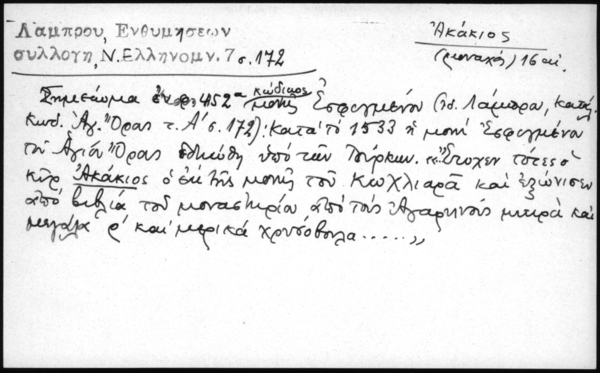 Λάμπρου, Ενθυμήσεων
συλλογη, Ν. Ελληνομν. 7 σ. 172
Ἀκάκιος
(μοναχός) 16 αἰ.
Σημείωμα 452α κώδικος
μονῆς Ἐσφιγμένου (ἰδ. Λάμπρου, Κατάλ.
Κωδ. Ἁγ. Ὄρους τ. Α΄ σ. 172): κατὰ τὸ 1533 ἡ μονὴ Ἐσφιγμένου
τοῦ Ἁγίου Ὄρους ὑπὸ τῶν Τούρκων. «Ἔτυχεν τότες ὁ
κὺρ Ἀκάκιος ὁ ἐκ τῆς μονῆς τοῦ Κοχλιαρᾶ καὶ ἐξώνισεν
ἀπὸ βιβλία τοῦ μοναστηρίου ἀπὸ τοὺς Ἀγαρηνοὺς μικρὰ καὶ
μεγάλα ρ΄ καὶ μερικὰ χρυσόβουλα.....»